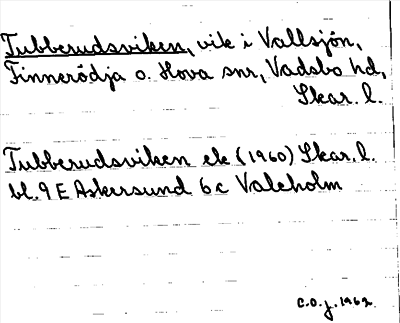 Tubberudsviken, vik i Vallsjön,
Finnerödja o. Hova snr, Vadsbo hd,
Skar. l.
Tubberudsviken ek (1960) Skar. l.
bl. 9 E Askersund 6 c Valeholm
C.O.J. 1962